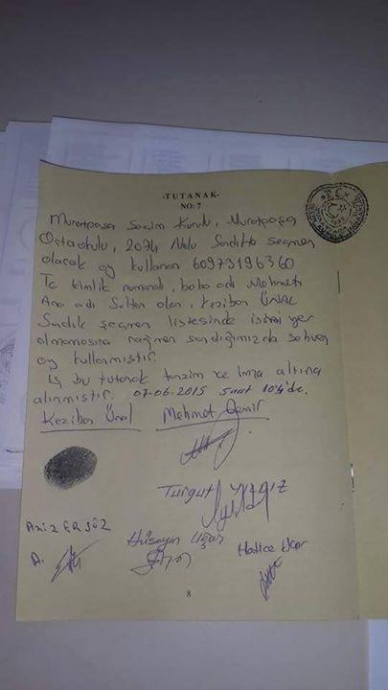 -TUTANAK-
NO: 7
Muratpaşa Seçim Kurulu, Muratpaşa
Ortaokulu, 2094 Nolu Sandıkta seçmen
olarak oy kullanan 60973196360
Tc kimlik numaralı, baba adı Mehmet
Ana adı Sultan olan, Keziban ÜNAL
Sandık seçmen listesinde ismi yer
olmamasına rağmen sandığımızda sehven
oy kullanmıştır.
İş bu tutanak tanzim ve imza altına
alınmıştır. 07-06-2015 saat
Keziban Ünal Mehmet
Turgut
Aziz ERSÖZ Hüseyin Uçar Hatice
A.
8